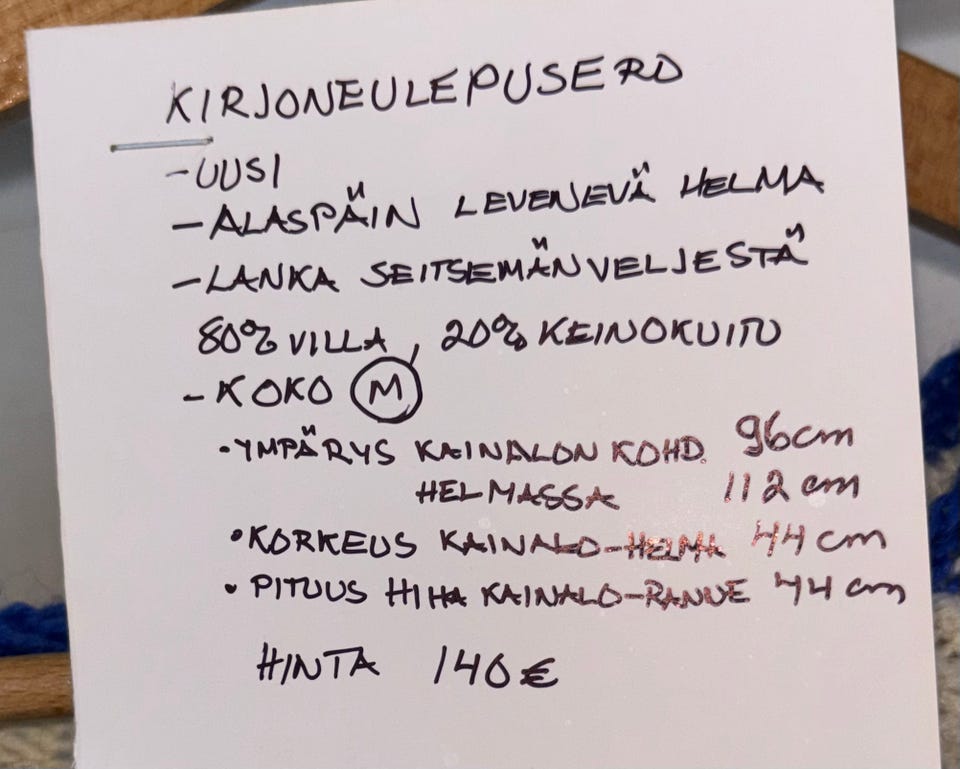 KIRJONEULEPUSERO
- UUSI
- ALASPÄIN LEVENEVÄ HELMA
- LANKA SEITSEMÄNVELJESTÄ
80% VILLA, 20% KEINOKUITU
- KOKO M
• YMPÄRYS KAINALON KOHD. 96cm
HELMASSA 112 cm
• KORKEUS KAINALO-HELMA 44 cm
• PITUUS HIHA KAINALO-RANNE 44 cm
HINTA 140 €